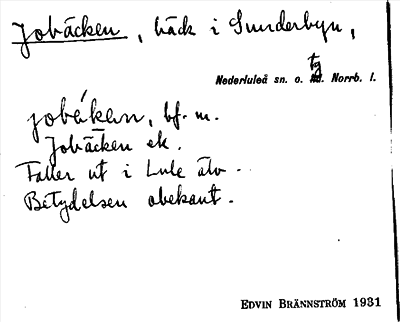 Jobäcken, bäck i Sunderbyn,
Nederluleå sn. o. tg. Norrb. l.
jobékan, bf. m.
Jobäcken ek.
Faller ut i Lule älv.
Betydelsen obekant.
EDVIN BRÄNNSTRÖM 1931